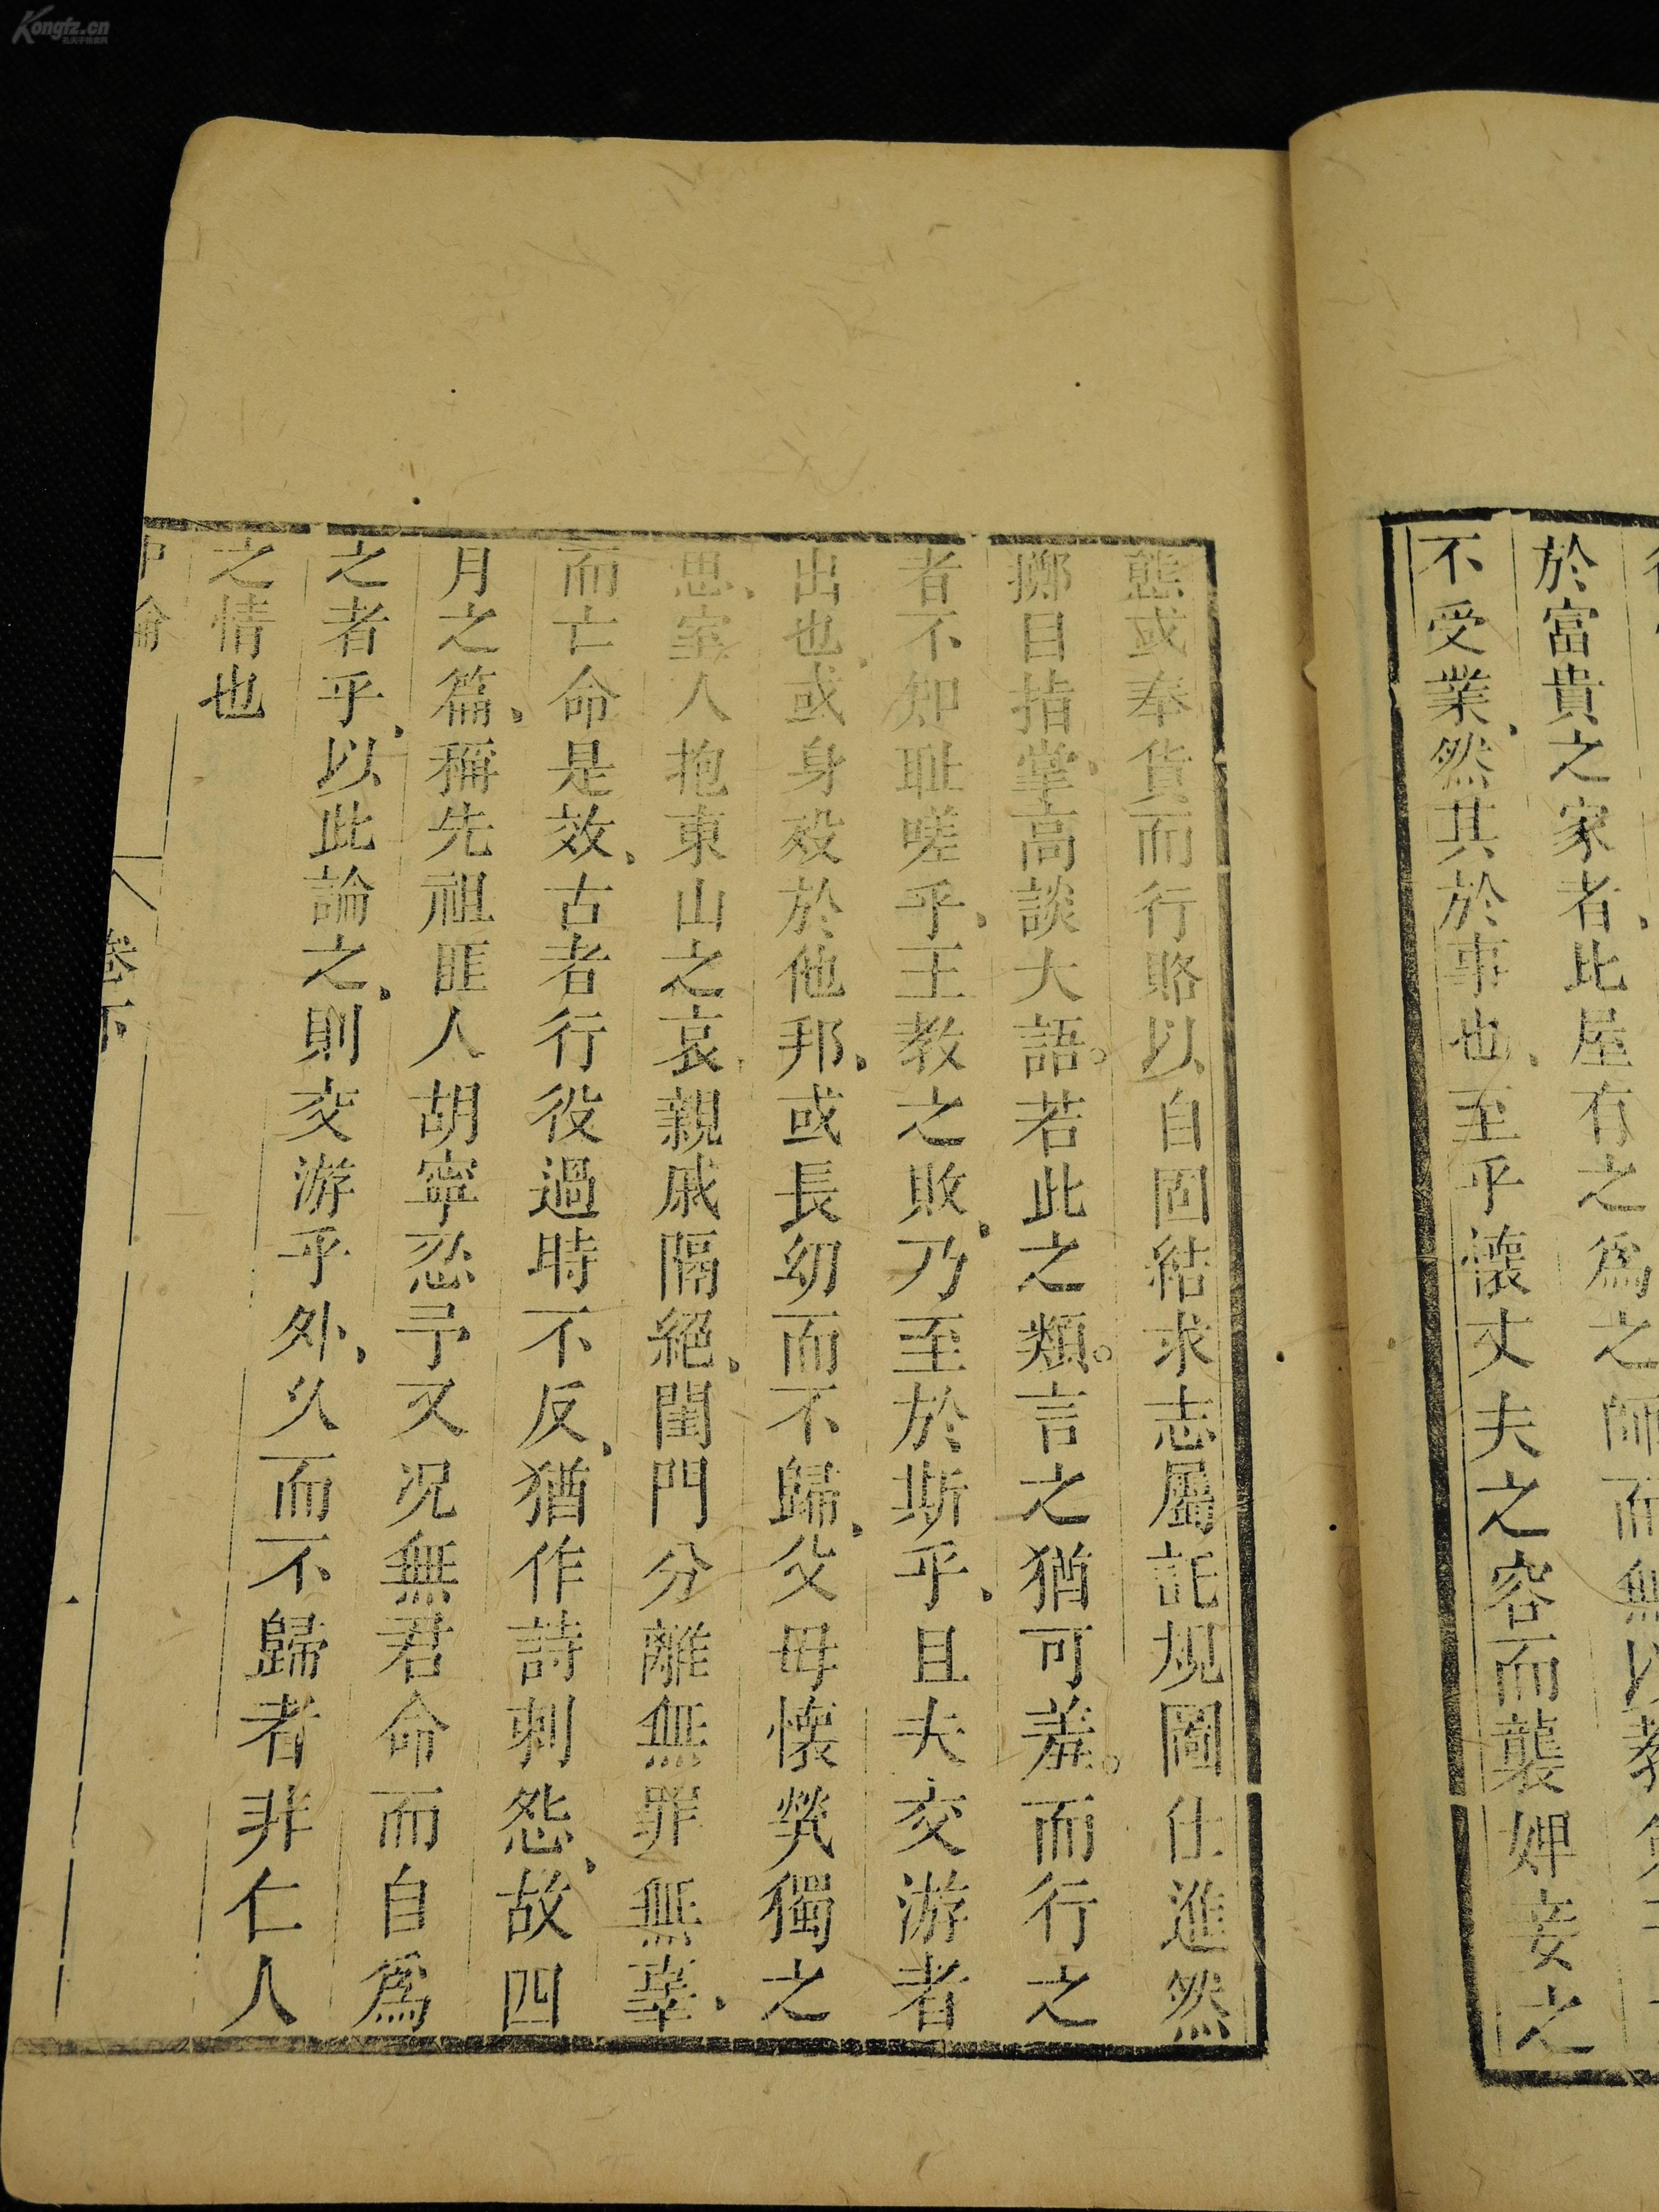 於富貴之家者、比屋有之爲之師而無以教
不受業、然其於事也、至乎懷丈夫之容而襲婢妾之
態或奉貨而行賂以自固結求志屬託規圖仕進然
擲目指掌、高談大語。若此之類。言之猶可羞。而行之
者不知恥嗟乎、王教之敗、乃至於斯乎、且夫交游者
出也、或身歿於他邦、或長幼而不歸、父母懷煢獨之
思、室人抱東山之哀、親戚隔絕、閨門分離無罪無辜、
而亡命是效、古者行役過時不反、猶作詩刺怨、故四
月之篇、稱先祖匪人胡寧忍予又况無君命而自爲
之者乎、以此論之、則交游乎外、久而不歸者非仁人
之情也
中論
卷下
Kongfz.cn